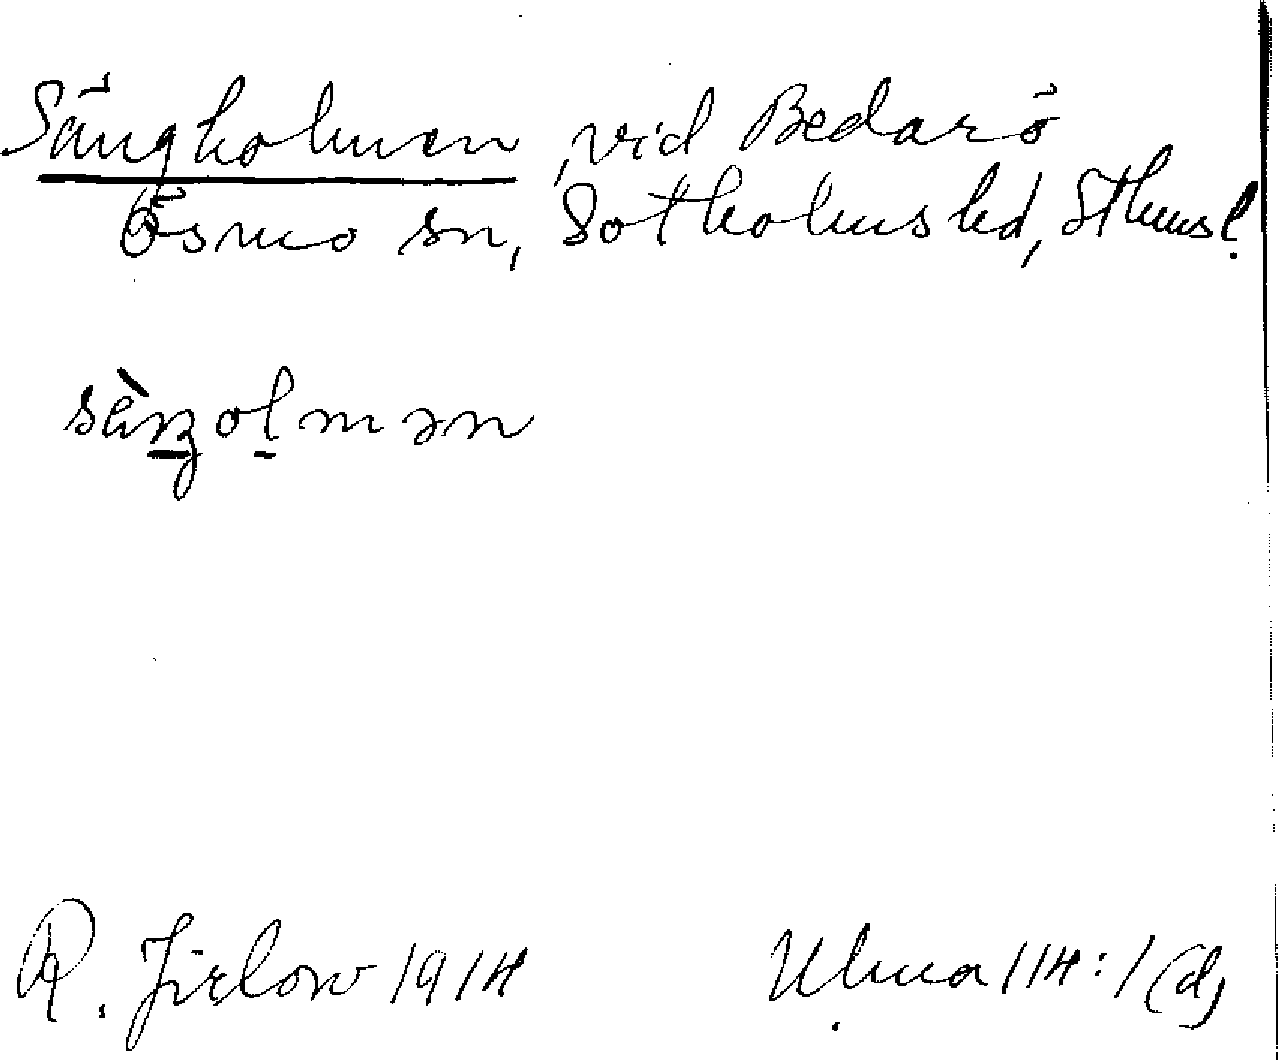 Sängholmen, vid Bedarö
Ösmo sn, Sotholms hd, Sthmsl.
R. Jirlow 1914
Ulma 114:1 (d)